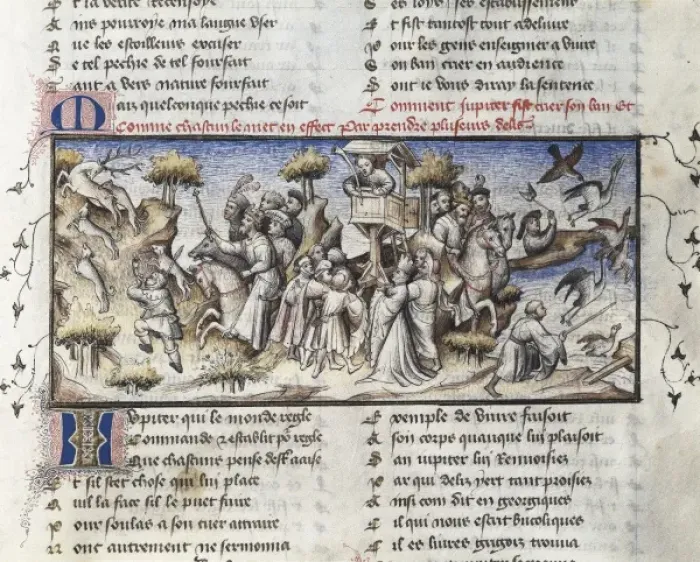 t la verite recensoye
Ains pourroye ma langue user
Que les escoilleurs
De tel pechie de tel fourfait
Tant a vers nature fourfait
Mais quelconque pechie ce soit
Ses loys ses establissemens
Et fist tantost tout a delivre
Pour les gens enseignier a vivre
Son ban crier en audience
Dont ie vous diray la sentence
Comment Jupiter fist crier son ban Et
Comme chascun le met en effect Par prendre pluseurs delis
Iupiter qui le monde regle
Commande & establit po regle
Que chascuns pense destre aaise
Et sil scet chose qui lui place
Quil la face sil le puet faire
Pour soulas a son cuer attraire
Onc autrement ne sermonna
Exemple de vivre faisoit
A son corps quanque lui plaisoit
Dan iupiter lui Renvoisiez
Par qui deliz yert tant proisiez
Ainsi com dit en georgiques
Cil qui nous escrist bucoliques
es livres grigois trouva